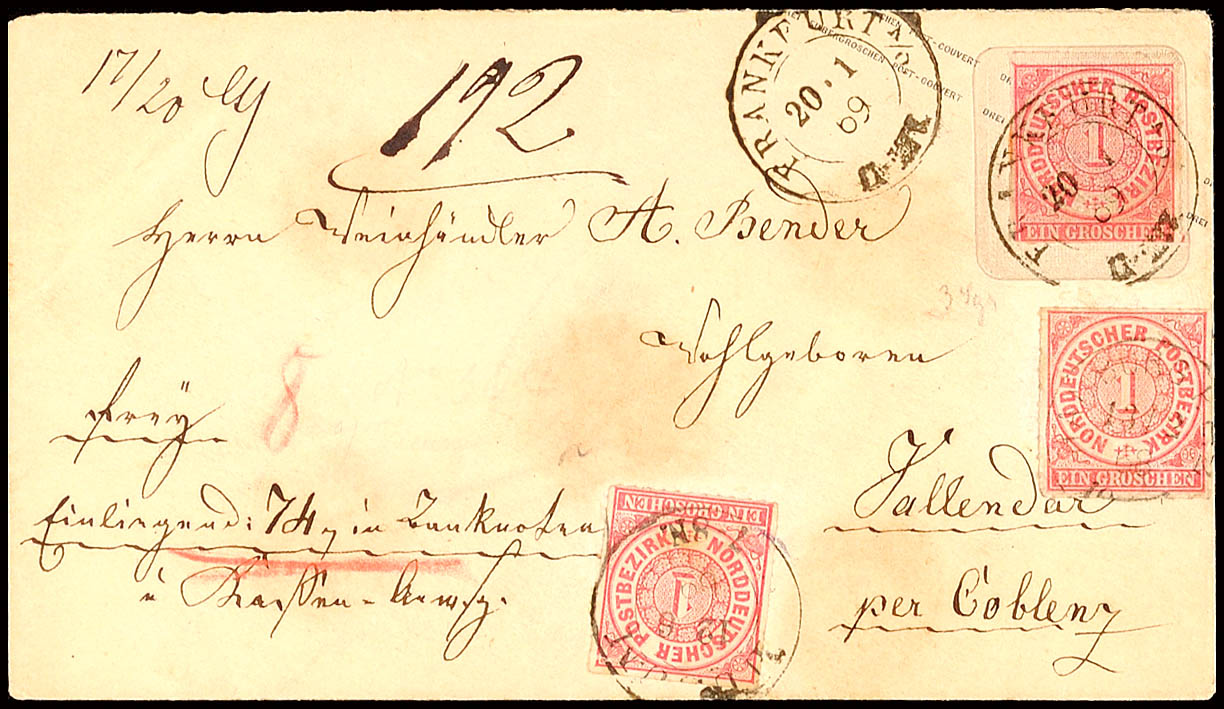 17/20
192
FRANKFURT A/
20. 1
69
DREI POST-COUVERT
GROSCHEN POST-COUVERT
NORDDEUTSCHER POSTBEZIRK
1
EIN GROSCHEN
20 1
69
Herrn Weinhändler A. Bender
Wohlgeboren
3 Sgr
NORDDEUTSCHER POSTBEZIRK
1
EIN GROSCHEN
8
frey
Vallendar
Einliegend: 74 in Banknoten
u Kassen-Anwsg.
per Coblenz
EIN GROSCHEN
NORDDEUTSCHER POSTBEZIRK
1